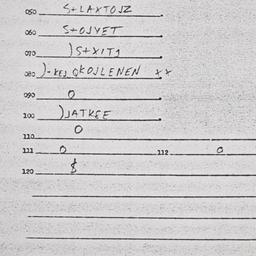 050 S+LAXTOJZ
060 S+OJYET
070 )S+XIT1
080 )-KEJ QKOJLENEN XX
090 O
100 )JATKEE
O
110
111 O 112 O
120 $